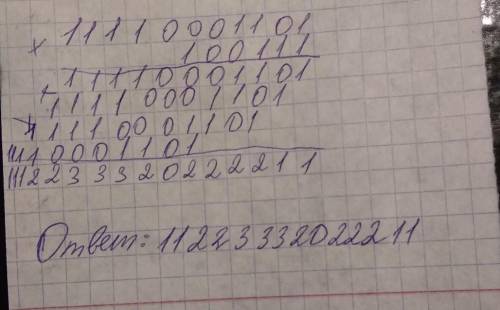 11110001101
× 100111
11110001101
+ 11110001101
+ 11110001101
11110001101
1112233320222211
Ответ: 11223332022211